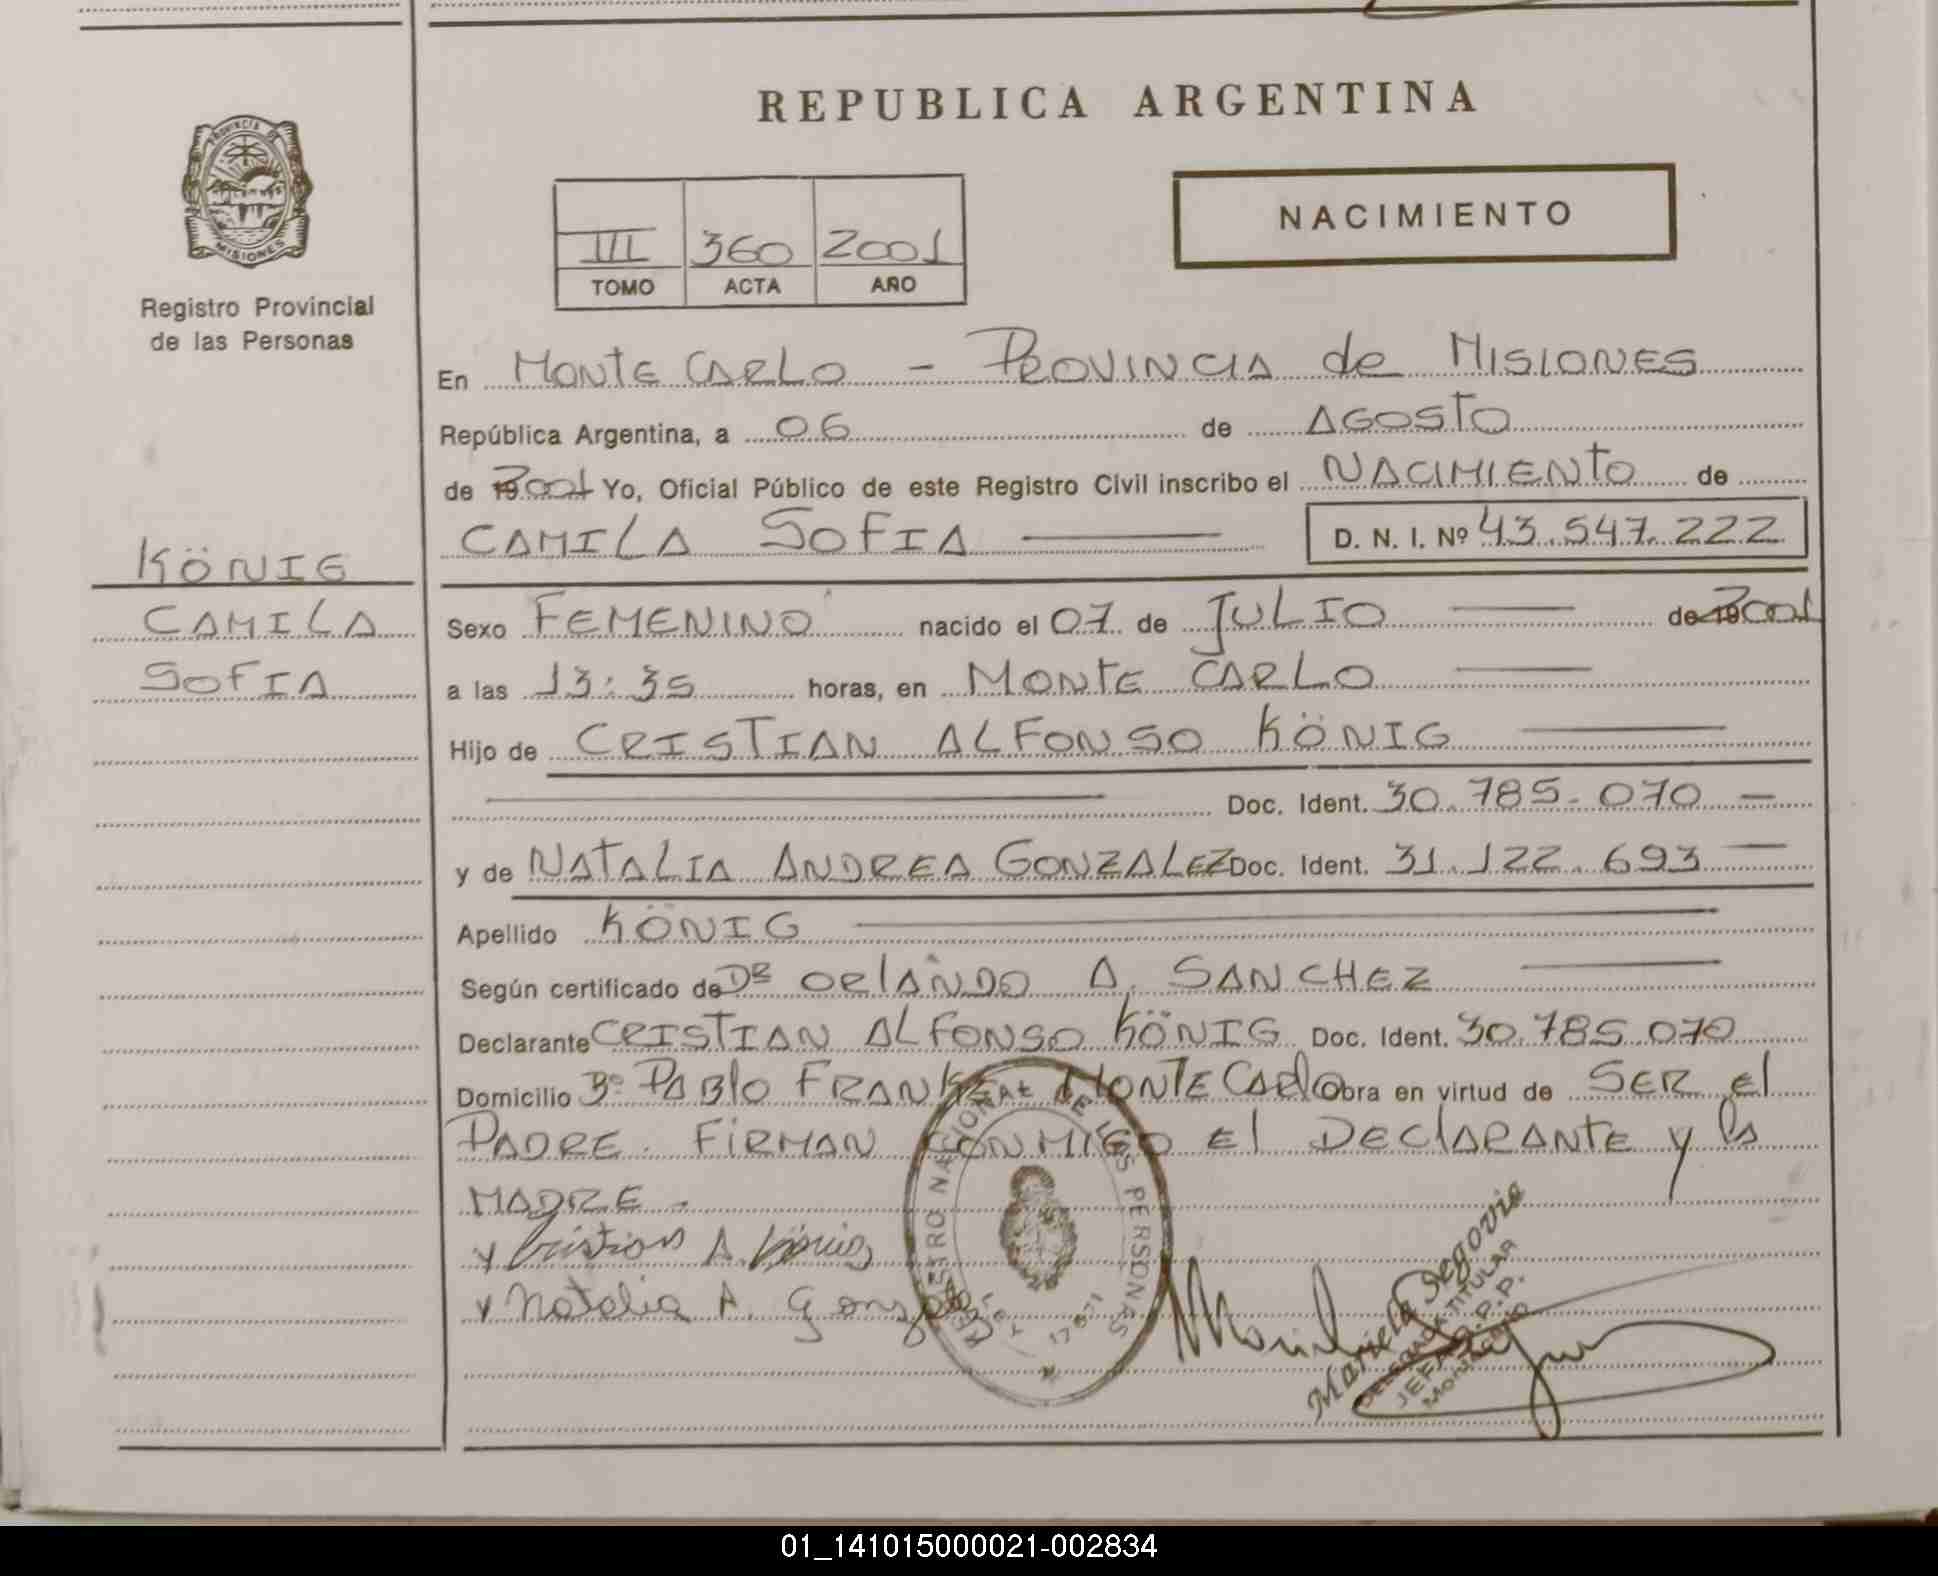 PROVINCIA DE
MISIONES
Registro Provincial
de las Personas
KÖNIG
CAMILA
SOFIA
REPUBLICA ARGENTINA
III 360 2001
TOMO ACTA AÑO
NACIMIENTO
En MONTE CARLO - PROVINCIA de MISIONES
República Argentina, a 06 de AGOSTO
de 2001 Yo, Oficial Público de este Registro Civil inscribo el NACIMIENTO de
CAMILA SOFIA D. N. I. Nº 43.547.222
Sexo FEMENINO nacido el 07 de JULIO de 2001
a las 13:35 horas, en MONTE CARLO
Hijo de CRISTIAN ALFONSO KÖNIG
Doc. Ident. 30.785.070
y de NATALIA ANDREA GONZALEZ Doc. Ident. 31.122.693
Apellido KÖNIG
Según certificado de DR ORLANDO A. SANCHEZ
Declarante CRISTIAN ALFONSO KÖNIG Doc. Ident. 30.785.070
Domicilio Bº PABLO FRANKE MONTE CARLO Obra en virtud de SER el
PADRE. FIRMAN CONMIGO El DEClARANTE y la
MADRE.
Cristian A. König
Natalia A. Gonzalez
REGISTRO NACIONAL DE LAS PERSONAS
LEY 17671
Mariela Segovia
DELEGADA TITULAR
01_141015000021-002834